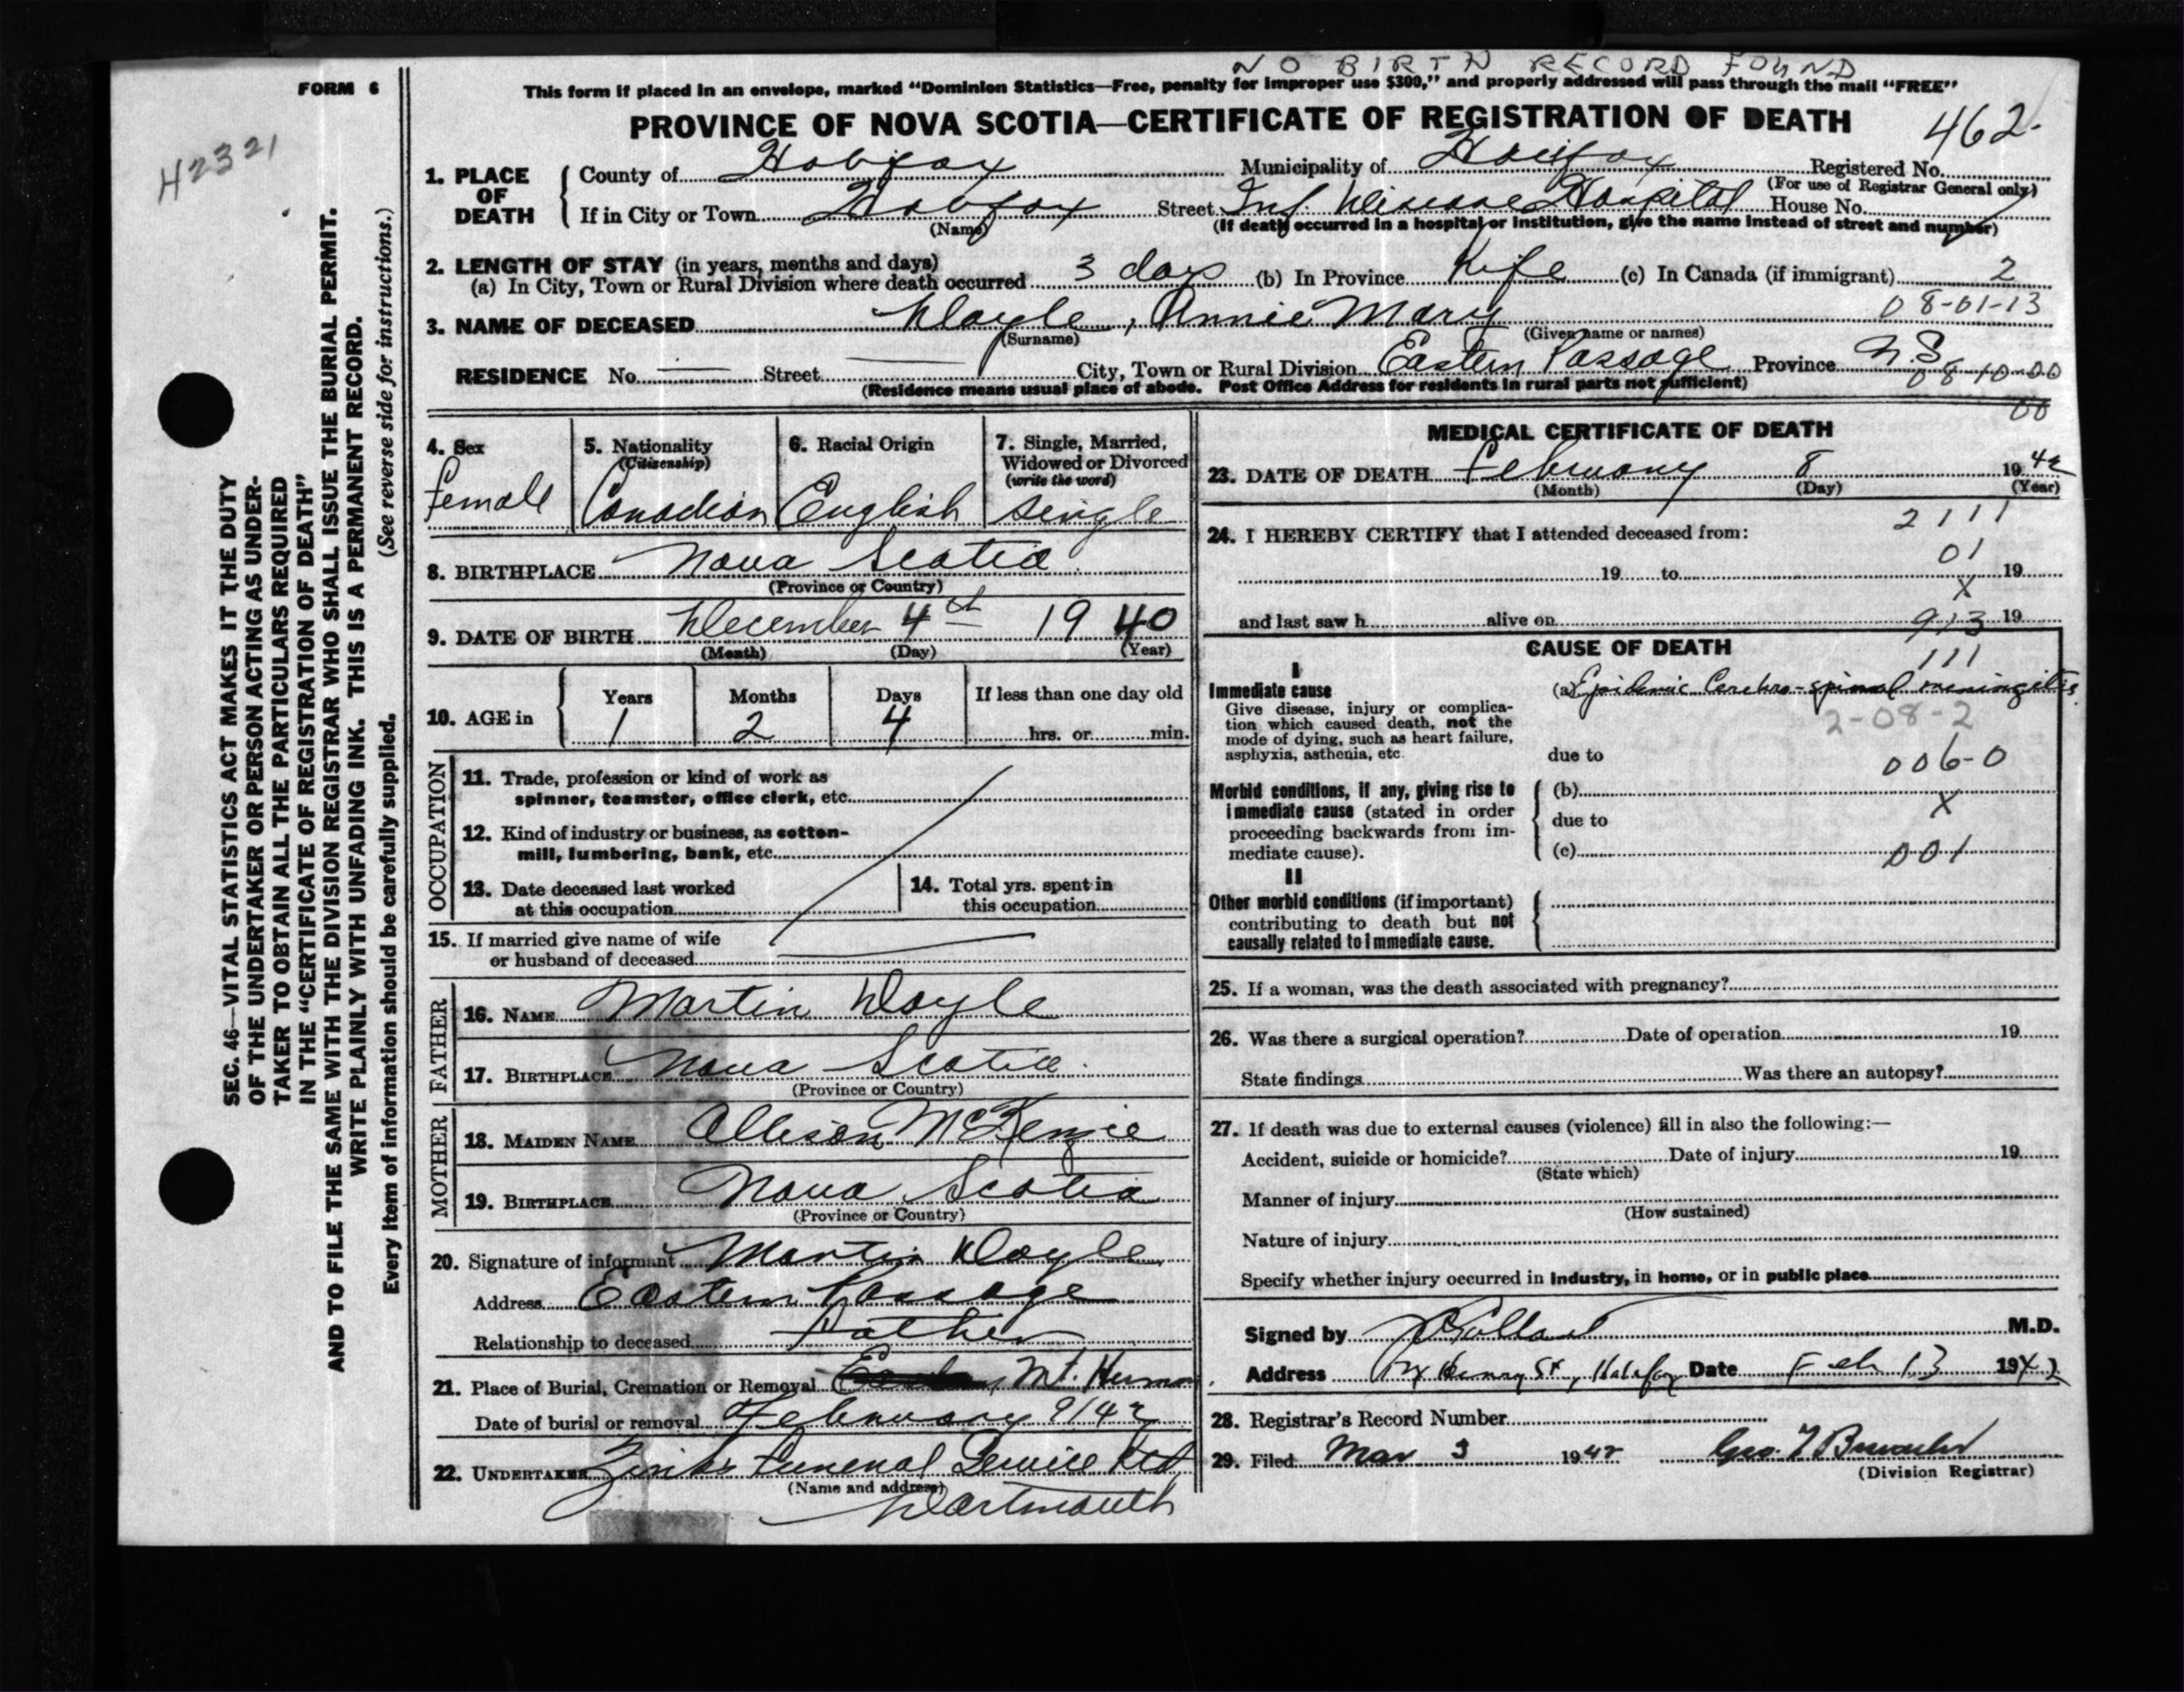 NO BIRTH RECORD FOUND
FORM 6
This form if placed in an envelope, marked "Dominion Statistics—Free, penalty for improper use $300," and properly addressed will pass through the mail "FREE"
PROVINCE OF NOVA SCOTIA—CERTIFICATE OF REGISTRATION OF DEATH
462.
H2321
1. PLACE OF DEATH
County of Halifax Municipality of Halifax Registered No.
(For use of Registrar General only)
If in City or Town Halifax Street Inf. Disease Hospital House No.
(Name) (If death occurred in a hospital or institution, give the name instead of street and number)
2. LENGTH OF STAY (in years, months and days)
(a) In City, Town or Rural Division where death occurred 3 days (b) In Province Life (c) In Canada (if immigrant) 2
08-01-13
3. NAME OF DECEASED Doyle, Annie Mary
(Surname) (Given name or names)
RESIDENCE No. — Street — City, Town or Rural Division Eastern Passage Province N.S.
08-10-00
(Residence means usual place of abode. Post Office Address for residents in rural parts not sufficient)
00
4. Sex
Female
5. Nationality
(Citizenship)
Canadian
6. Racial Origin
English
7. Single, Married,
Widowed or Divorced
(write the word)
Single
8. BIRTHPLACE Nova Scotia
(Province or Country)
9. DATE OF BIRTH December 4th 1940
(Month) (Day) (Year)
10. AGE in
Years Months Days If less than one day old
1 2 4 hrs. or min.
OCCUPATION
11. Trade, profession or kind of work as
spinner, teamster, office clerk, etc.
12. Kind of industry or business, as cotton-
mill, lumbering, bank, etc.
13. Date deceased last worked
at this occupation
14. Total yrs. spent in
this occupation
15. If married give name of wife
or husband of deceased
FATHER
16. NAME Martin Doyle
17. BIRTHPLACE Nova Scotia
(Province or Country)
MOTHER
18. MAIDEN NAME Allison McKenzie
19. BIRTHPLACE Nova Scotia
(Province or Country)
20. Signature of informant Martin Doyle
Address Eastern Passage
Relationship to deceased Father
21. Place of Burial, Cremation or Removal Mt. Herman
Date of burial or removal February 9/42
22. UNDERTAKER Zinks Funeral Service Ltd
(Name and address)
Dartmouth
MEDICAL CERTIFICATE OF DEATH
23. DATE OF DEATH February 8 1942
(Month) (Day) (Year)
2111
24. I HEREBY CERTIFY that I attended deceased from:
01
19 to 19
X
and last saw h alive on 19
913
CAUSE OF DEATH
111
I
Immediate cause
Give disease, injury or complica-
tion which caused death, not the
mode of dying, such as heart failure,
asphyxia, asthenia, etc.
(a) Epidemic Cerebro-spinal meningitis
2-08-2
due to
006-0
Morbid conditions, if any, giving rise to
immediate cause (stated in order
proceeding backwards from im-
mediate cause).
(b)
X
due to
(c) 001
II
Other morbid conditions (if important)
contributing to death but not
causally related to immediate cause.
25. If a woman, was the death associated with pregnancy?
26. Was there a surgical operation? Date of operation 19
State findings Was there an autopsy?
27. If death was due to external causes (violence) fill in also the following:—
Accident, suicide or homicide? Date of injury 19
(State which)
Manner of injury
(How sustained)
Nature of injury
Specify whether injury occurred in industry, in home, or in public place
Signed by M.D.
Address Henry St, Halifax Date Feb 13 1942
28. Registrar's Record Number
29. Filed Mar 3 1942 Geo.
(Division Registrar)
SEC. 46—VITAL STATISTICS ACT MAKES IT THE DUTY
OF THE UNDERTAKER OR PERSON ACTING AS UNDER-
TAKER TO OBTAIN ALL THE PARTICULARS REQUIRED
IN THE "CERTIFICATE OF REGISTRATION OF DEATH"
AND TO FILE THE SAME WITH THE DIVISION REGISTRAR WHO SHALL ISSUE THE BURIAL PERMIT.
WRITE PLAINLY WITH UNFADING INK. THIS IS A PERMANENT RECORD.
Every item of information should be carefully supplied. (See reverse side for instructions.)